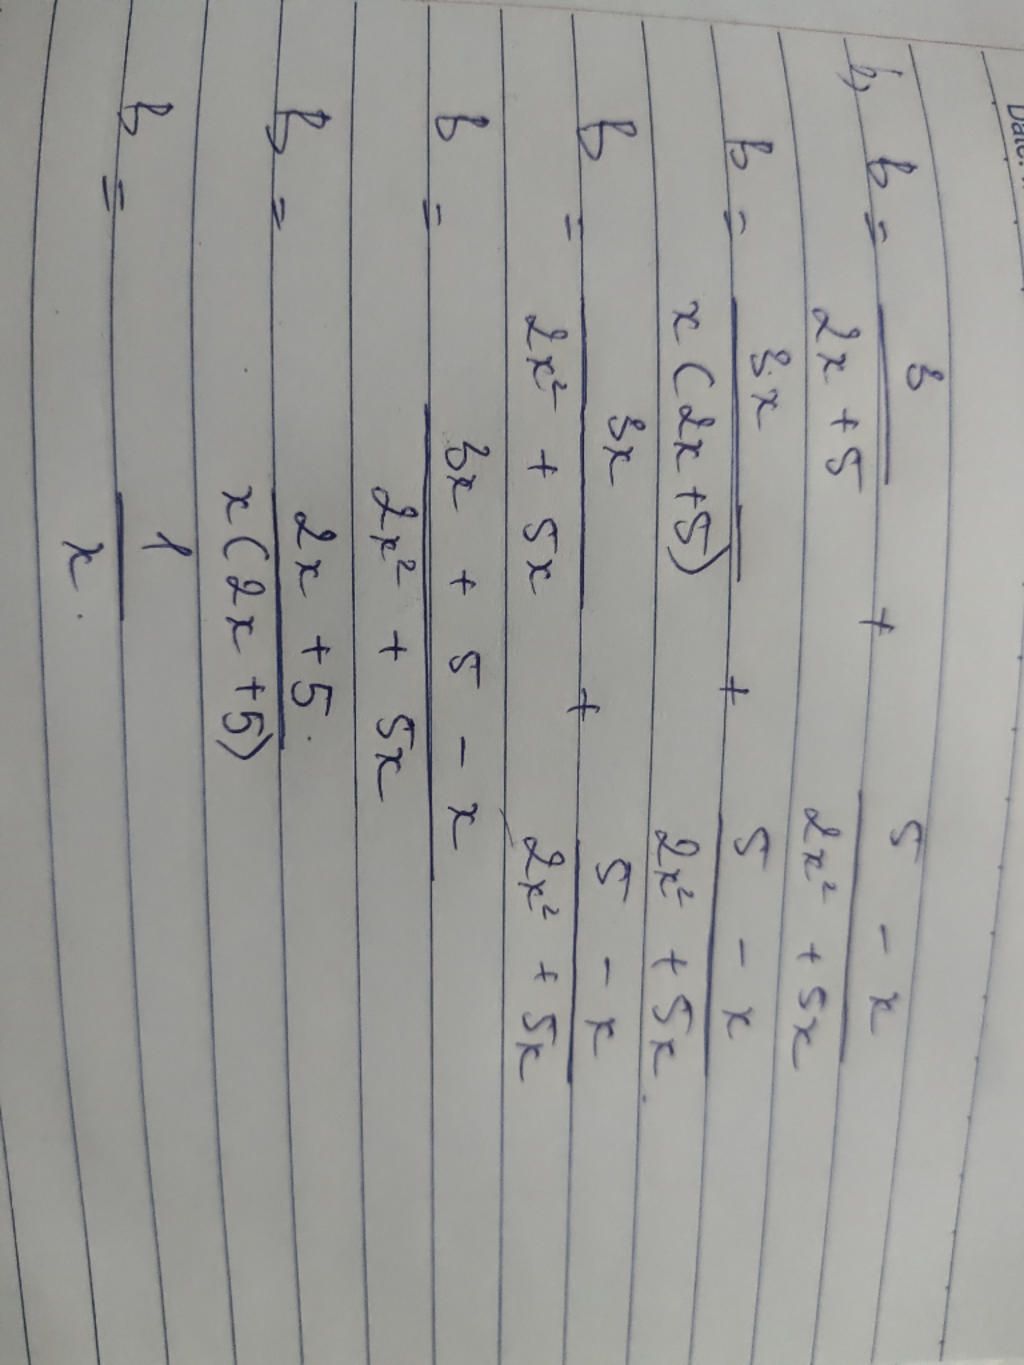 Date:
b, B = 3 / (2x + 5) + (5 - x) / (2x² + 5x)
B = 3x / (x(2x + 5)) + (5 - x) / (2x² + 5x)
B = 3x / (2x² + 5x) + (5 - x) / (2x² + 5x)
B = (3x + 5 - x) / (2x² + 5x)
B = (2x + 5) / (x(2x + 5))
B = 1 / x.